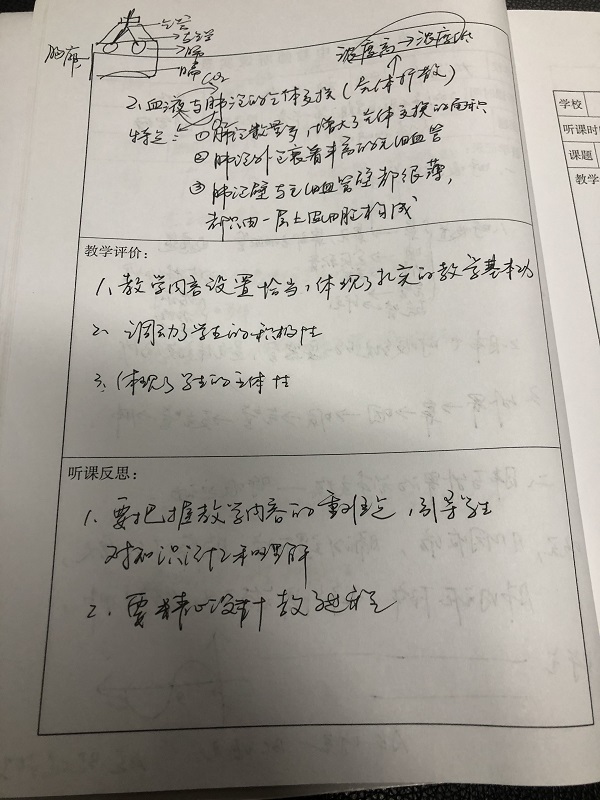 气管
支气管
肺
膈
胸廓
浓度高→浓度低
CO₂
2、血液与肺泡的气体交换(气体扩散)
O₂
特点：①肺泡数量多，增大了气体交换的面积
②肺泡外包裹着丰富的毛细血管
③肺泡壁与毛细血管壁都很薄，
都只由一层上皮细胞构成
教学评价：
1、教学内容设置恰当，体现了扎实的教学基本功
2、调动了学生的积极性
3、体现了学生的主体性
听课反思：
1、要把握教学内容的重难点，引导学生
对知识记忆和理解
2、要精心设计教学过程
学校
听课时
课题
教学